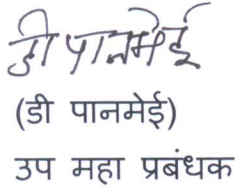 डी पानमेई
(डी पानमेई)
उप महा प्रबंधक